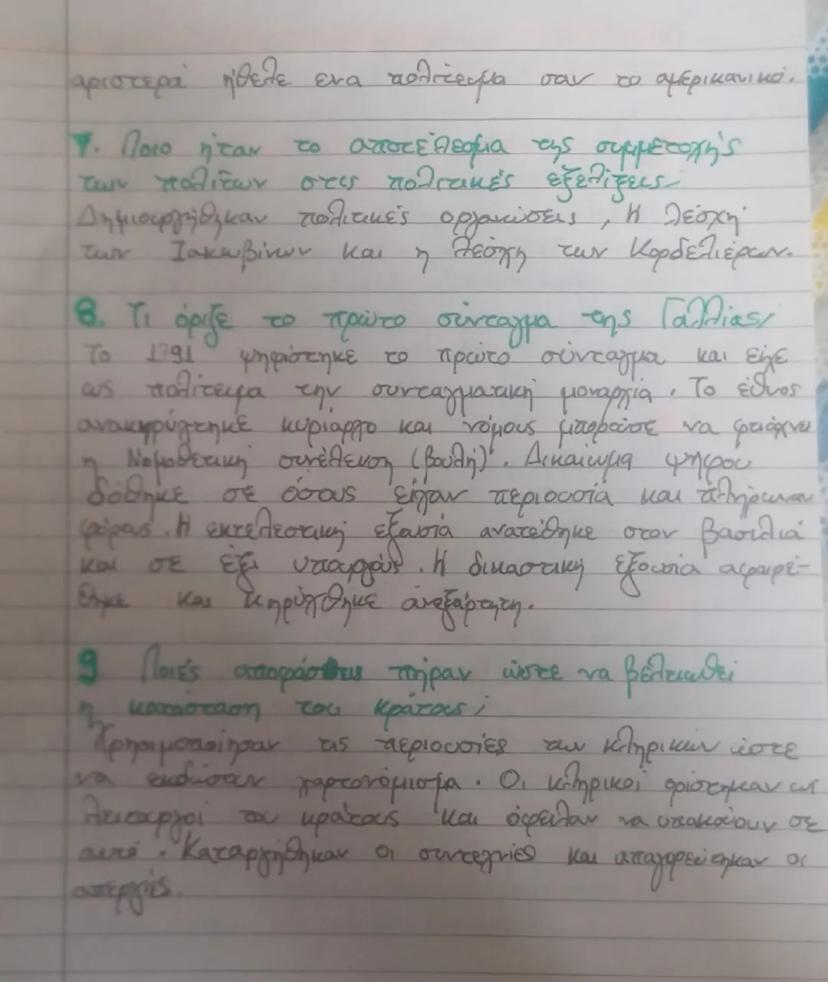 αριστερά ήθελε ενα πολίτευμα σαν το αμερικανικό.
7. Ποιο ήταν το αποτέλεσμα της συμμετοχής
των πολιτών στις πολιτικές εξελίξεις;
Δημιουργήθηκαν πολιτικές οργανώσεις, Η λέσχη
των Ιακωβίνων και η λέσχη των Κορδελιέρων.
8. Τι όριζε το πρώτο σύνταγμα της Γαλλίας;
Το 1791 ψηφίστηκε το πρώτο σύνταγμα και είχε
ως πολίτευμα την συνταγματική μοναρχία. Το έθνος
ανακυρήχτηκε κυρίαρχο και νόμους μπορούσε να φτιάχνει
η Νομοθετική συνέλευση (βουλή). Δικαίωμα ψήφου
δόθηκε σε όσους είχαν περιουσία και πλήρωναν
φόρους. Η εκτελεστική εξουσία ανατέθηκε στον βασιλιά
και σε έξι υπουργούς. Η δικαστική εξουσία αφαιρέ-
θηκε και κηρύχθηκε ανεξάρτητη.
9 Ποιές αποφάσεις πήραν ώστε να βελτιωθεί
η κατάσταση του κράτους;
Χρησιμοποίησαν τις περιουσίες των κληρικών ώστε
να εκδώσουν χαρτονόμισμα. Οι κληρικοί ορίστηκαν ως
λειτουργοί του κράτους και όφειλαν να υπακούουν σε
αυτό. Καταργήθηκαν οι συντεχνίες και απαγορεύτηκαν οι
απεργίες.